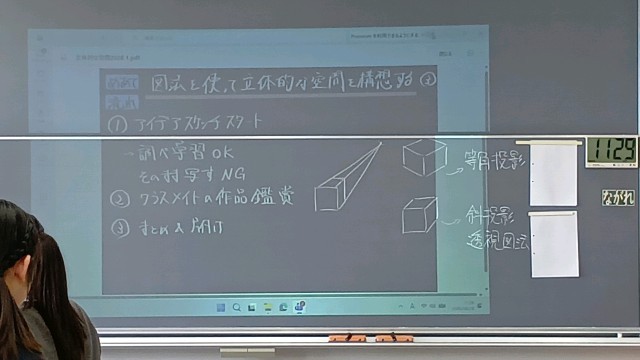 図法を使って立体的な空間を構想する④
① アイデアスケッチスタート
→調べ学習OK
そのまま写すNG
② クラスメイトの作品鑑賞
③ まとめ&
等角投影
斜投影
透視図法
1129
ながれ